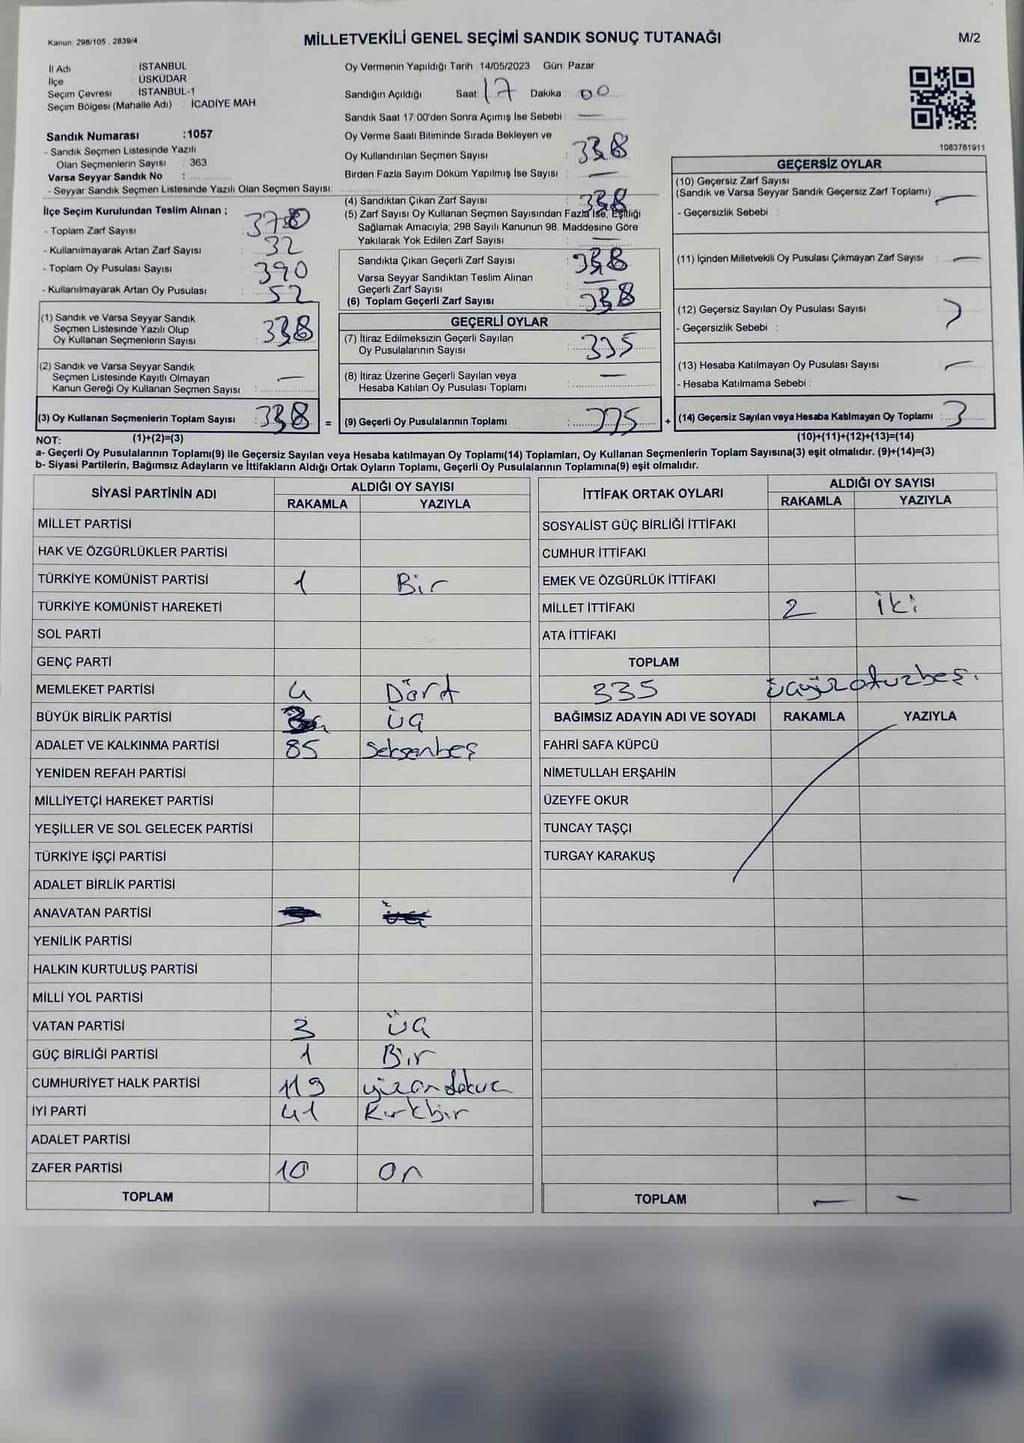 Kanun: 298/105 , 2839/4
MİLLETVEKİLİ GENEL SEÇİMİ SANDIK SONUÇ TUTANAĞI
M/2
İl Adı : İSTANBUL
İlçe : ÜSKÜDAR
Seçim Çevresi : İSTANBUL-1
Seçim Bölgesi (Mahalle Adı) : İCADİYE MAH
Sandık Numarası :1057
- Sandık Seçmen Listesinde Yazılı
Olan Seçmenlerin Sayısı : 363
Varsa Seyyar Sandık No :
- Seyyar Sandık Seçmen Listesinde Yazılı Olan Seçmen Sayısı:
İlçe Seçim Kurulundan Teslim Alınan ;
- Toplam Zarf Sayısı : 370
- Kullanılmayarak Artan Zarf Sayısı : 32
- Toplam Oy Pusulası Sayısı : 390
- Kullanılmayarak Artan Oy Pusulası : 52
(1) Sandık ve Varsa Seyyar Sandık
Seçmen Listesinde Yazılı Olup
Oy Kullanan Seçmenlerin Sayısı : 338
(2) Sandık ve Varsa Seyyar Sandık
Seçmen Listesinde Kayıtlı Olmayan
Kanun Gereği Oy Kullanan Seçmen Sayısı : —
(3) Oy Kullanan Seçmenlerin Toplam Sayısı : 338
Oy Vermenin Yapıldığı Tarih 14/05/2023 Gün: Pazar
Sandığın Açıldığı Saat: 17 Dakika : 00
Sandık Saat 17:00'den Sonra Açımış İse Sebebi : —
Oy Verme Saati Bitiminde Sırada Bekleyen ve
Oy Kullandırılan Seçmen Sayısı : 338
Birden Fazla Sayım Döküm Yapılmış İse Sayısı : —
(4) Sandıktan Çıkan Zarf Sayısı : 338
(5) Zarf Sayısı Oy Kullanan Seçmen Sayısından Fazla İse, Eşitliği
Sağlamak Amacıyla; 298 Sayılı Kanunun 98. Maddesine Göre
Yakılarak Yok Edilen Zarf Sayısı : —
Sandıkta Çıkan Geçerli Zarf Sayısı : 338
Varsa Seyyar Sandıktan Teslim Alınan
Geçerli Zarf Sayısı : —
(6) Toplam Geçerli Zarf Sayısı : 338
GEÇERLİ OYLAR
(7) İtiraz Edilmeksizin Geçerli Sayılan
Oy Pusulalarının Sayısı : 335
(8) İtiraz Üzerine Geçerli Sayılan veya
Hesaba Katılan Oy Pusulası Toplamı : —
= (9) Geçerli Oy Pusulalarının Toplamı : 335
1083781911
GEÇERSİZ OYLAR
(10) Geçersiz Zarf Sayısı
(Sandık ve Varsa Seyyar Sandık Geçersiz Zarf Toplamı) : —
- Geçersizlik Sebebi :
(11) İçinden Milletvekili Oy Pusulası Çıkmayan Zarf Sayısı : —
(12) Geçersiz Sayılan Oy Pusulası Sayısı : 3
- Geçersizlik Sebebi :
(13) Hesaba Katılmayan Oy Pusulası Sayısı : —
- Hesaba Katılmama Sebebi :
+ (14) Geçersiz Sayılan veya Hesaba Katılmayan Oy Toplamı : 3
NOT: (1)+(2)=(3) (10)+(11)+(12)+(13)=(14)
a- Geçerli Oy Pusulalarının Toplamı(9) ile Geçersiz Sayılan veya Hesaba katılmayan Oy Toplamı(14) Toplamları, Oy Kullanan Seçmenlerin Toplam Sayısına(3) eşit olmalıdır. (9)+(14)=(3)
b- Siyasi Partilerin, Bağımsız Adayların ve İttifakların Aldığı Ortak Oyların Toplamı, Geçerli Oy Pusulalarının Toplamına(9) eşit olmalıdır.
SİYASİ PARTİNİN ADI ALDIĞI OY SAYISI
RAKAMLA YAZIYLA
MİLLET PARTİSİ
HAK VE ÖZGÜRLÜKLER PARTİSİ
TÜRKİYE KOMÜNİST PARTİSİ 1 Bir
TÜRKİYE KOMÜNİST HAREKETİ
SOL PARTİ
GENÇ PARTİ
MEMLEKET PARTİSİ 4 Dört
BÜYÜK BİRLİK PARTİSİ üç
ADALET VE KALKINMA PARTİSİ 85 Seksenbeş
YENİDEN REFAH PARTİSİ
MİLLİYETÇİ HAREKET PARTİSİ
YEŞİLLER VE SOL GELECEK PARTİSİ
TÜRKİYE İŞÇİ PARTİSİ
ADALET BİRLİK PARTİSİ
ANAVATAN PARTİSİ
YENİLİK PARTİSİ
HALKIN KURTULUŞ PARTİSİ
MİLLİ YOL PARTİSİ
VATAN PARTİSİ 3 üç
GÜÇ BİRLİĞİ PARTİSİ 1 Bir
CUMHURİYET HALK PARTİSİ 119 yüzondokuz
İYİ PARTİ 41 Kırkbir
ADALET PARTİSİ
ZAFER PARTİSİ 10 On
TOPLAM
İTTİFAK ORTAK OYLARI ALDIĞI OY SAYISI
RAKAMLA YAZIYLA
SOSYALİST GÜÇ BİRLİĞİ İTTİFAKI
CUMHUR İTTİFAKI
EMEK VE ÖZGÜRLÜK İTTİFAKI
MİLLET İTTİFAKI 2 iki
ATA İTTİFAKI
TOPLAM
335 üçyüzotuzbeş.
BAĞIMSIZ ADAYIN ADI VE SOYADI RAKAMLA YAZIYLA
FAHRİ SAFA KÜPCÜ
NİMETULLAH ERŞAHİN
ÜZEYFE OKUR
TUNCAY TAŞÇI
TURGAY KARAKUŞ
TOPLAM — —